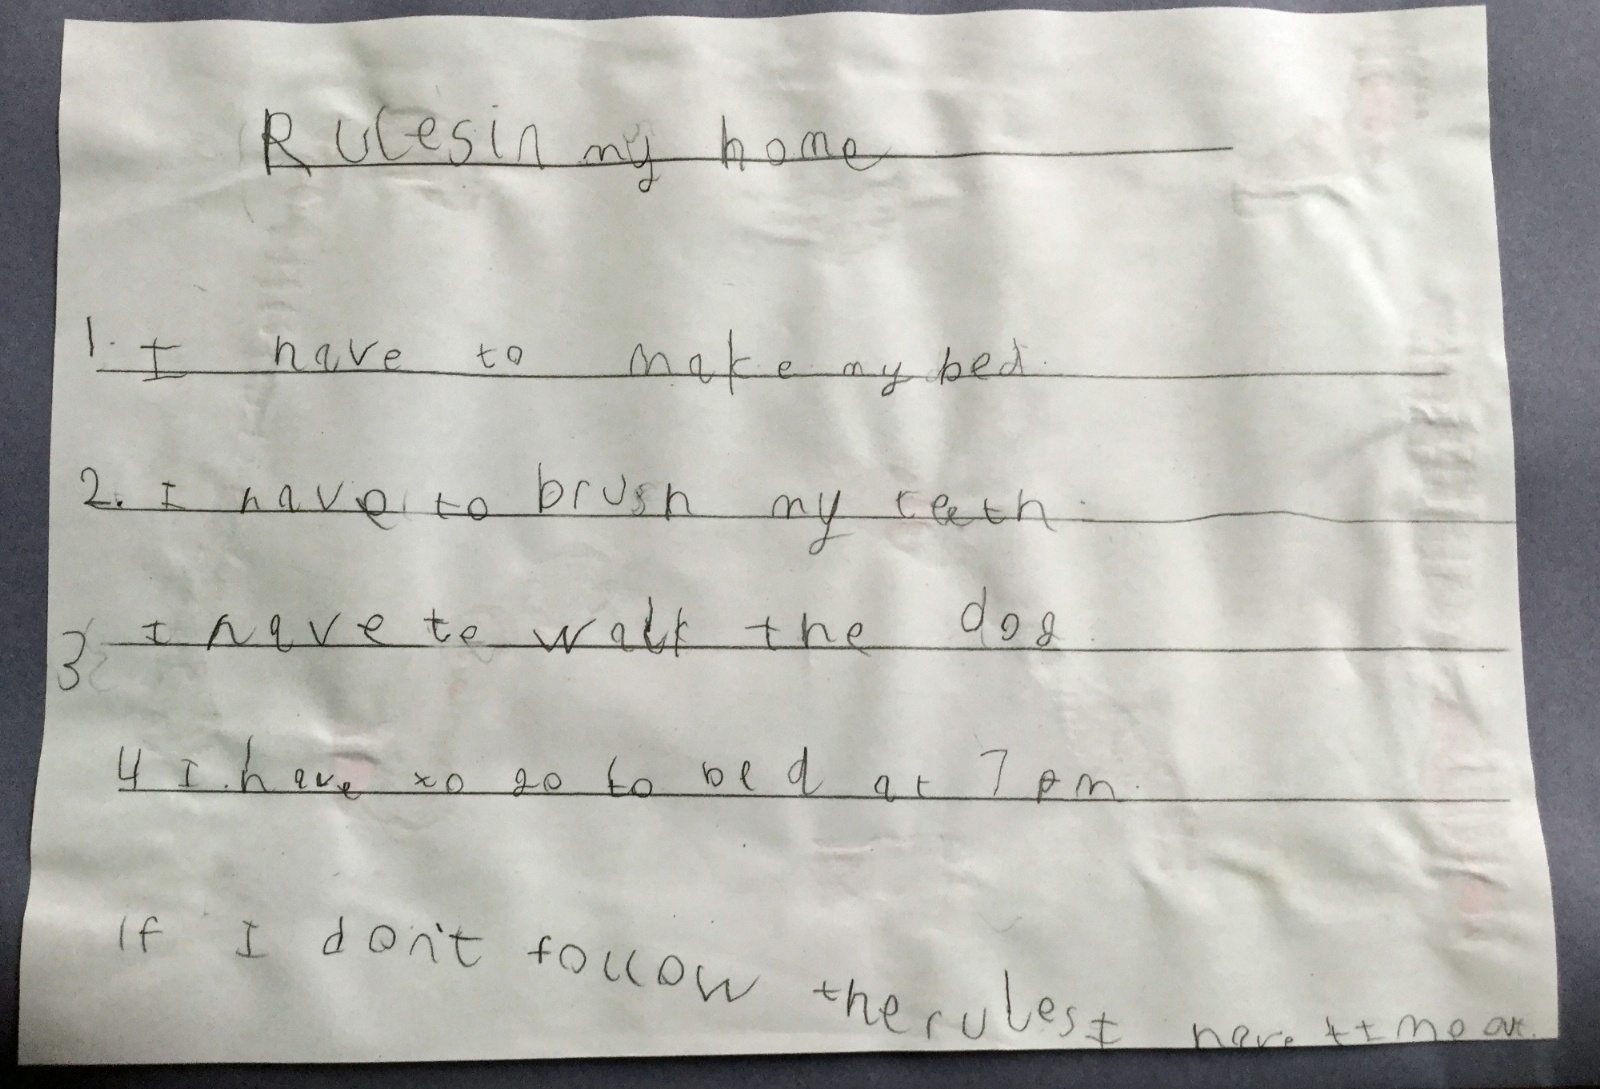 Rules in my home
1. I have to make my bed.
2. I have to brush my teeth.
3 I have to walk the dog.
4 I have to go to bed at 7 pm.
If I don't follow the rules I have time out.